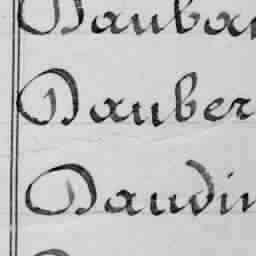 Dauba
Dauber
Daudin